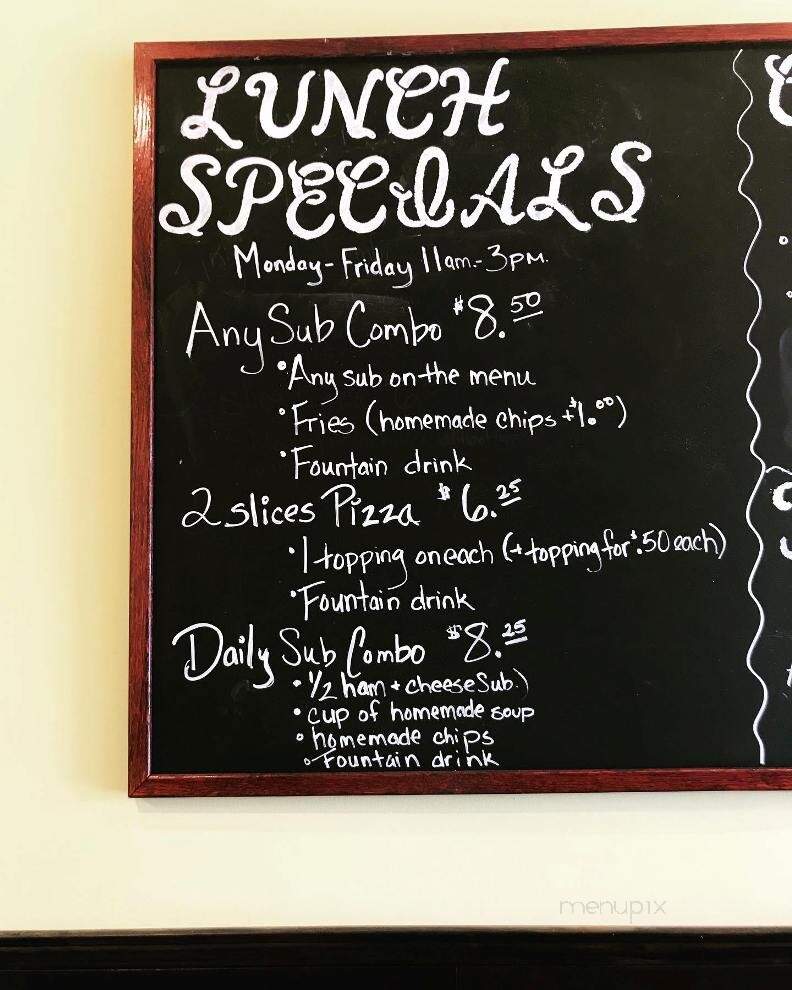 LUNCH
SPECIALS
Monday - Friday 11am - 3pm.
Any Sub Combo $8.50
• Any sub on the menu
• Fries (homemade chips +$1.00)
• Fountain drink
2 slices Pizza $6.25
• 1 topping on each (+ topping for $.50 each)
• Fountain drink
Daily Sub Combo $8.25
• 1/2 ham + cheese Sub.)
• cup of homemade soup
• homemade chips
• Fountain drink
menupix